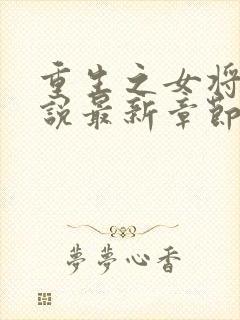 重生之女将
說最新章節
夢夢心香